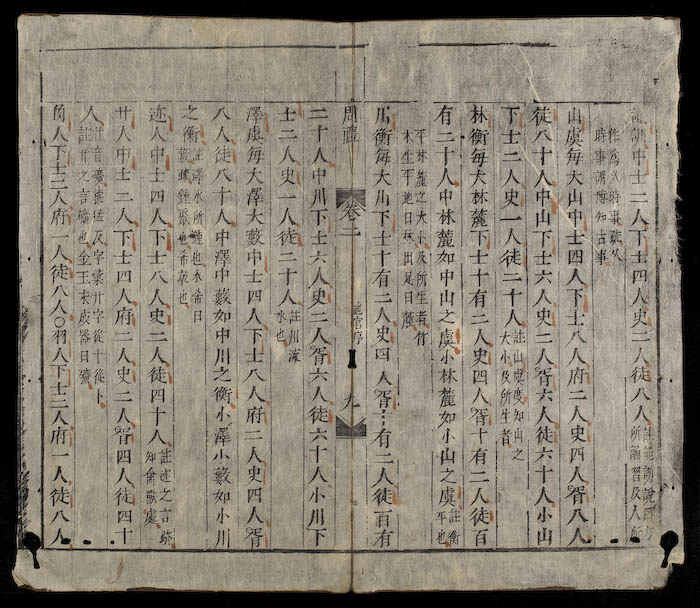 訓中士二人下士四人史二人徒八人註能訓說四方所誦習及人所
作爲久時事疏云時事謂博知古事
山虞每大山中士四人下士八人府二人史四人胥八人
徒八十人中山下士六人史二人胥六人徒六十人小山
下士二人史一人徒二十人註山虞度知山之大小及所生者
林衡每大林麓下士十有二人史四人胥十有二人徒百
有二十人中林麓如中山之虞小林麓如小山之虞註衡平也
平林麓之大小及所生者竹木生平地曰林山足曰麓
川衡每大川下士十有二人史四人胥十有二人徒百有
周禮 卷二 地官序 九
二十人中川下士六人史二人胥六人徒六十人小川下
士二人史一人徒二十人註川流水也
澤虞每大澤大藪中士四人下士八人府二人史四人胥
八人徒八十人中澤中藪如中川之衡小澤小藪如小川
之衡註澤水所鍾也水希曰藪禹鍾聚也希乾也
迹人中士四人下士八人史二人徒四十人註迹之言跡知禽獸處
丱人中士二人下士四人府二人史二人胥四人徒四十
人丱音礦虢猛反字彙丱字從十從卜註丱之言礦也金玉未成器曰礦
角人下士二人府一人徒八人〇羽人下士二人府一人徒八人